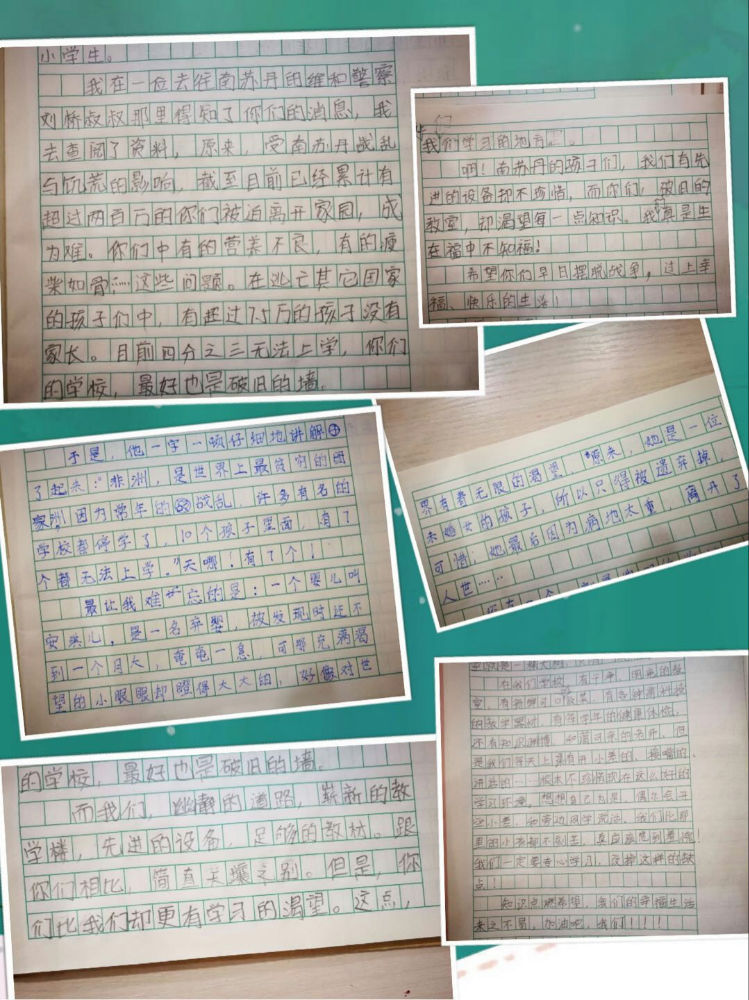 小学生。
我在一位去往南苏丹的维和警察
刘桥叔叔那里得知了你们的消息，我
去查阅了资料，原来，受南苏丹战乱
与饥荒的影响，截至目前已经累计有
超过两百万的你们被迫离开家园，成
为难。你们中有的营养不良，有的瘦
柴如骨……这些问题。在逃亡其它国家
的孩子们中，有超过7.5万的孩子没有
家长。目前四分之三无法上学，你们
的学校，最好也是破旧的墙。
我们学习的地方
啊！南苏丹的孩子们，我们有先
进的设备却不珍惜，而你们，破旧的
教室，却渴望每一点知识。我们真是生
在福中不知福！
希望你们早日摆脱战争，过上幸
福、快乐的生活！
于是，他一字一顿仔细地讲解
了起来："非洲，是世界上最贫穷的国
家，因为常年的战乱，许多有名的
学校都停学了，10个孩子里面，有7
个都无法上学。"天哪！有7个！
最让我难忘的是：一个婴儿叫
安然儿，是一名弃婴，被发现时还不
到一个月大，奄奄一息，可那充满渴
望的小眼眼却瞪得大大的，好像对世
界有着无限的渴望，原来，她是一位
未婚女的孩子，所以只得被遗弃掉，
可惜，她最后因为病地太重，离开了
人世……
的学校，最好也是破旧的墙。
而我们，幽静的道路，崭新的教
学楼，先进的设备，足够的教材。跟
你们相比，简直天壤之别。但是，你
们比我们却更有学习的渴望。这点，
在我们学校，有干净、明亮的教
的教学器材，有
还有知识渊博、和蔼可亲的老师，但
是我们每天上课有开小差的、
学习环境，想想自己也是，偶尔会开
里的小孩都不别
我们一定要专心学习，改掉这样的缺
点！！
知识点燃希望，我们的幸福生活
来之不易，加油吧，我们！！！！